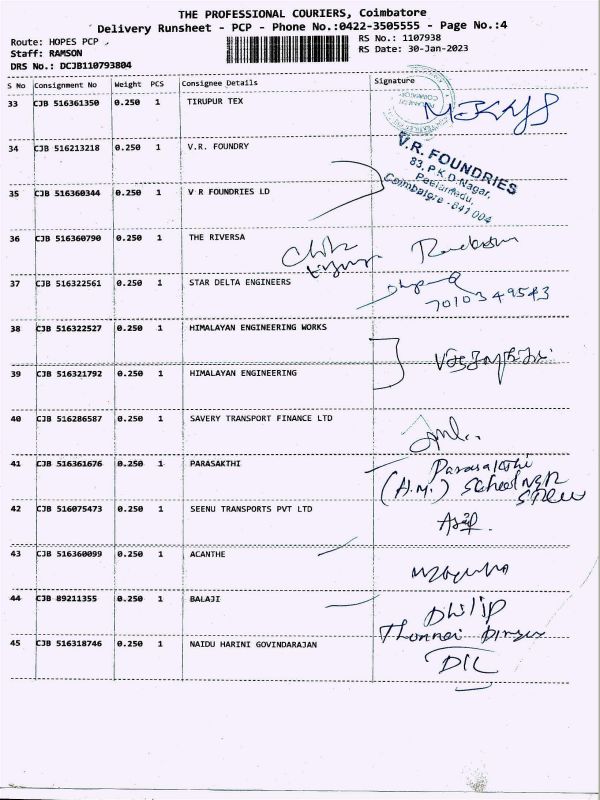 THE PROFESSIONAL COURIERS, Coimbatore
Delivery Runsheet - PCP - Phone No.:0422-3505555 - Page No.:4
Route: HOPES PCP
RS No.: 1107938
Staff: RAMSON
RS Date: 30-Jan-2023
DRS No.: DCJB110793804
S No Consignment No Weight PCS Consignee Details Signature
33 CJB 516361350 0.250 1 TIRUPUR TEX
34 CJB 516213218 0.250 1 V.R. FOUNDRY
V.R. FOUNDRIES
83, P.K.D.Nagar,
Peelamedu,
Coimbatore - 641 004
35 CJB 516360344 0.250 1 V R FOUNDRIES LD
36 CJB 516360790 0.250 1 THE RIVERSA
37 CJB 516322561 0.250 1 STAR DELTA ENGINEERS
7010349543
38 CJB 516322527 0.250 1 HIMALAYAN ENGINEERING WORKS
39 CJB 516321792 0.250 1 HIMALAYAN ENGINEERING
40 CJB 516286587 0.250 1 SAVERY TRANSPORT FINANCE LTD
41 CJB 516361676 0.250 1 PARASAKTHI
(H.M.) School
42 CJB 516075473 0.250 1 SEENU TRANSPORTS PVT LTD
43 CJB 516360099 0.250 1 ACANTHE
44 CJB 89211355 0.250 1 BALAJI
Philip
45 CJB 516318746 0.250 1 NAIDU HARINI GOVINDARAJAN